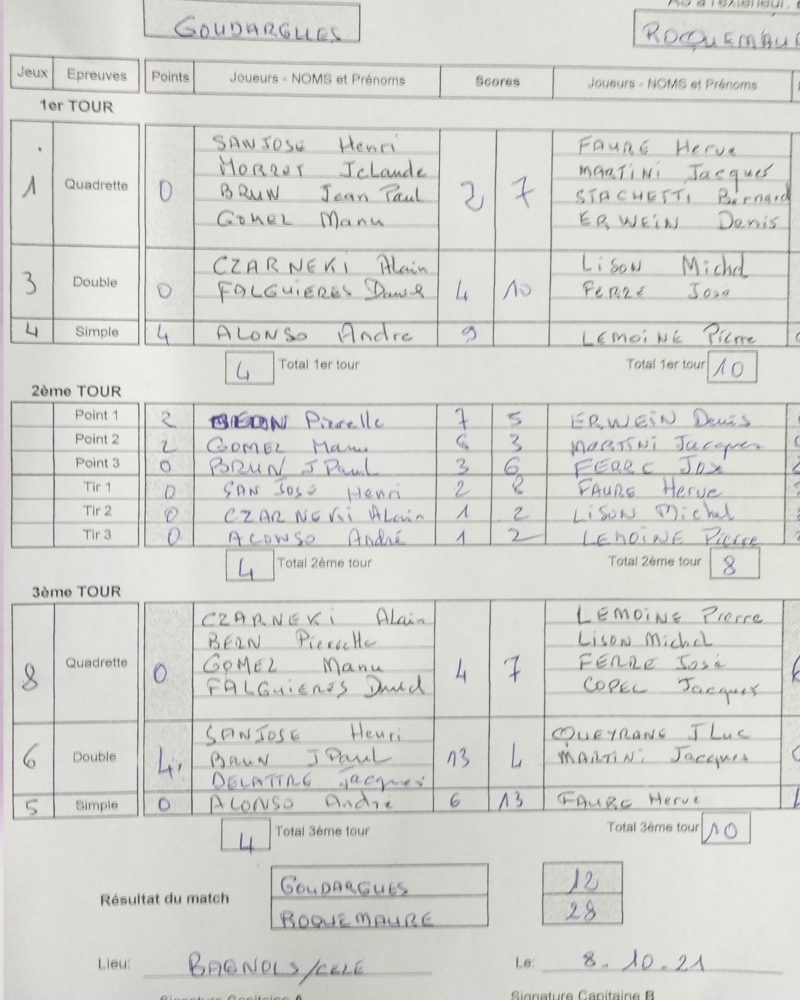 GOUDARGUES ROQUEMAU
Jeux Epreuves Points Joueurs - NOMS et Prénoms Scores Joueurs - NOMS et Prénoms
1er TOUR
SANJOSE Henri FAURE Herve
MORROT JClaude MARTINI Jacques
1 Quadrette 0 BRUN Jean Paul 2 7 STACHETTI Bernard
GOMEZ Manu ERWEIN Denis
CZARNEKI Alain LISON Michel
3 Double 0 FALGUIERES David 4 10 FERRE Jose
4 Simple 4 ALONSO Andre 9 LEMOINE Pierre
4 Total 1er tour Total 1er tour 10
2ème TOUR
Point 1 2 BERN Pierrette 7 5 ERWEIN Denis
Point 2 2 GOMEZ Manu 6 3 MARTINI Jacques
Point 3 0 BRUN JPaul 3 6 FERRE Jose
Tir 1 0 SAN JOSE Henri 2 8 FAURE Herve
Tir 2 0 CZARNEKI Alain 1 2 LISON Michel
Tir 3 0 ALONSO André 1 2 LEMOINE Pierre
4 Total 2ème tour Total 2ème tour 8
3ème TOUR
CZARNEKI Alain LEMOINE Pierre
BERN Pierrette LISON Michel
8 Quadrette 0 GOMEZ Manu 4 7 FERRE José
FALGUIERES David COPEL Jacques
SANJOSE Henri QUEYRANE JLuc
6 Double 4 BRUN JPaul 13 4 MARTINI Jacques
DELATTRE Jacques
5 Simple 0 ALONSO André 6 13 FAURE Hervé
4 Total 3ème tour Total 3ème tour 10
Résultat du match GOUDARGUES 12
ROQUEMAURE 28
Lieu: BAGNOLS/CEZE Le: 8.10.21
Signature Capitaine B